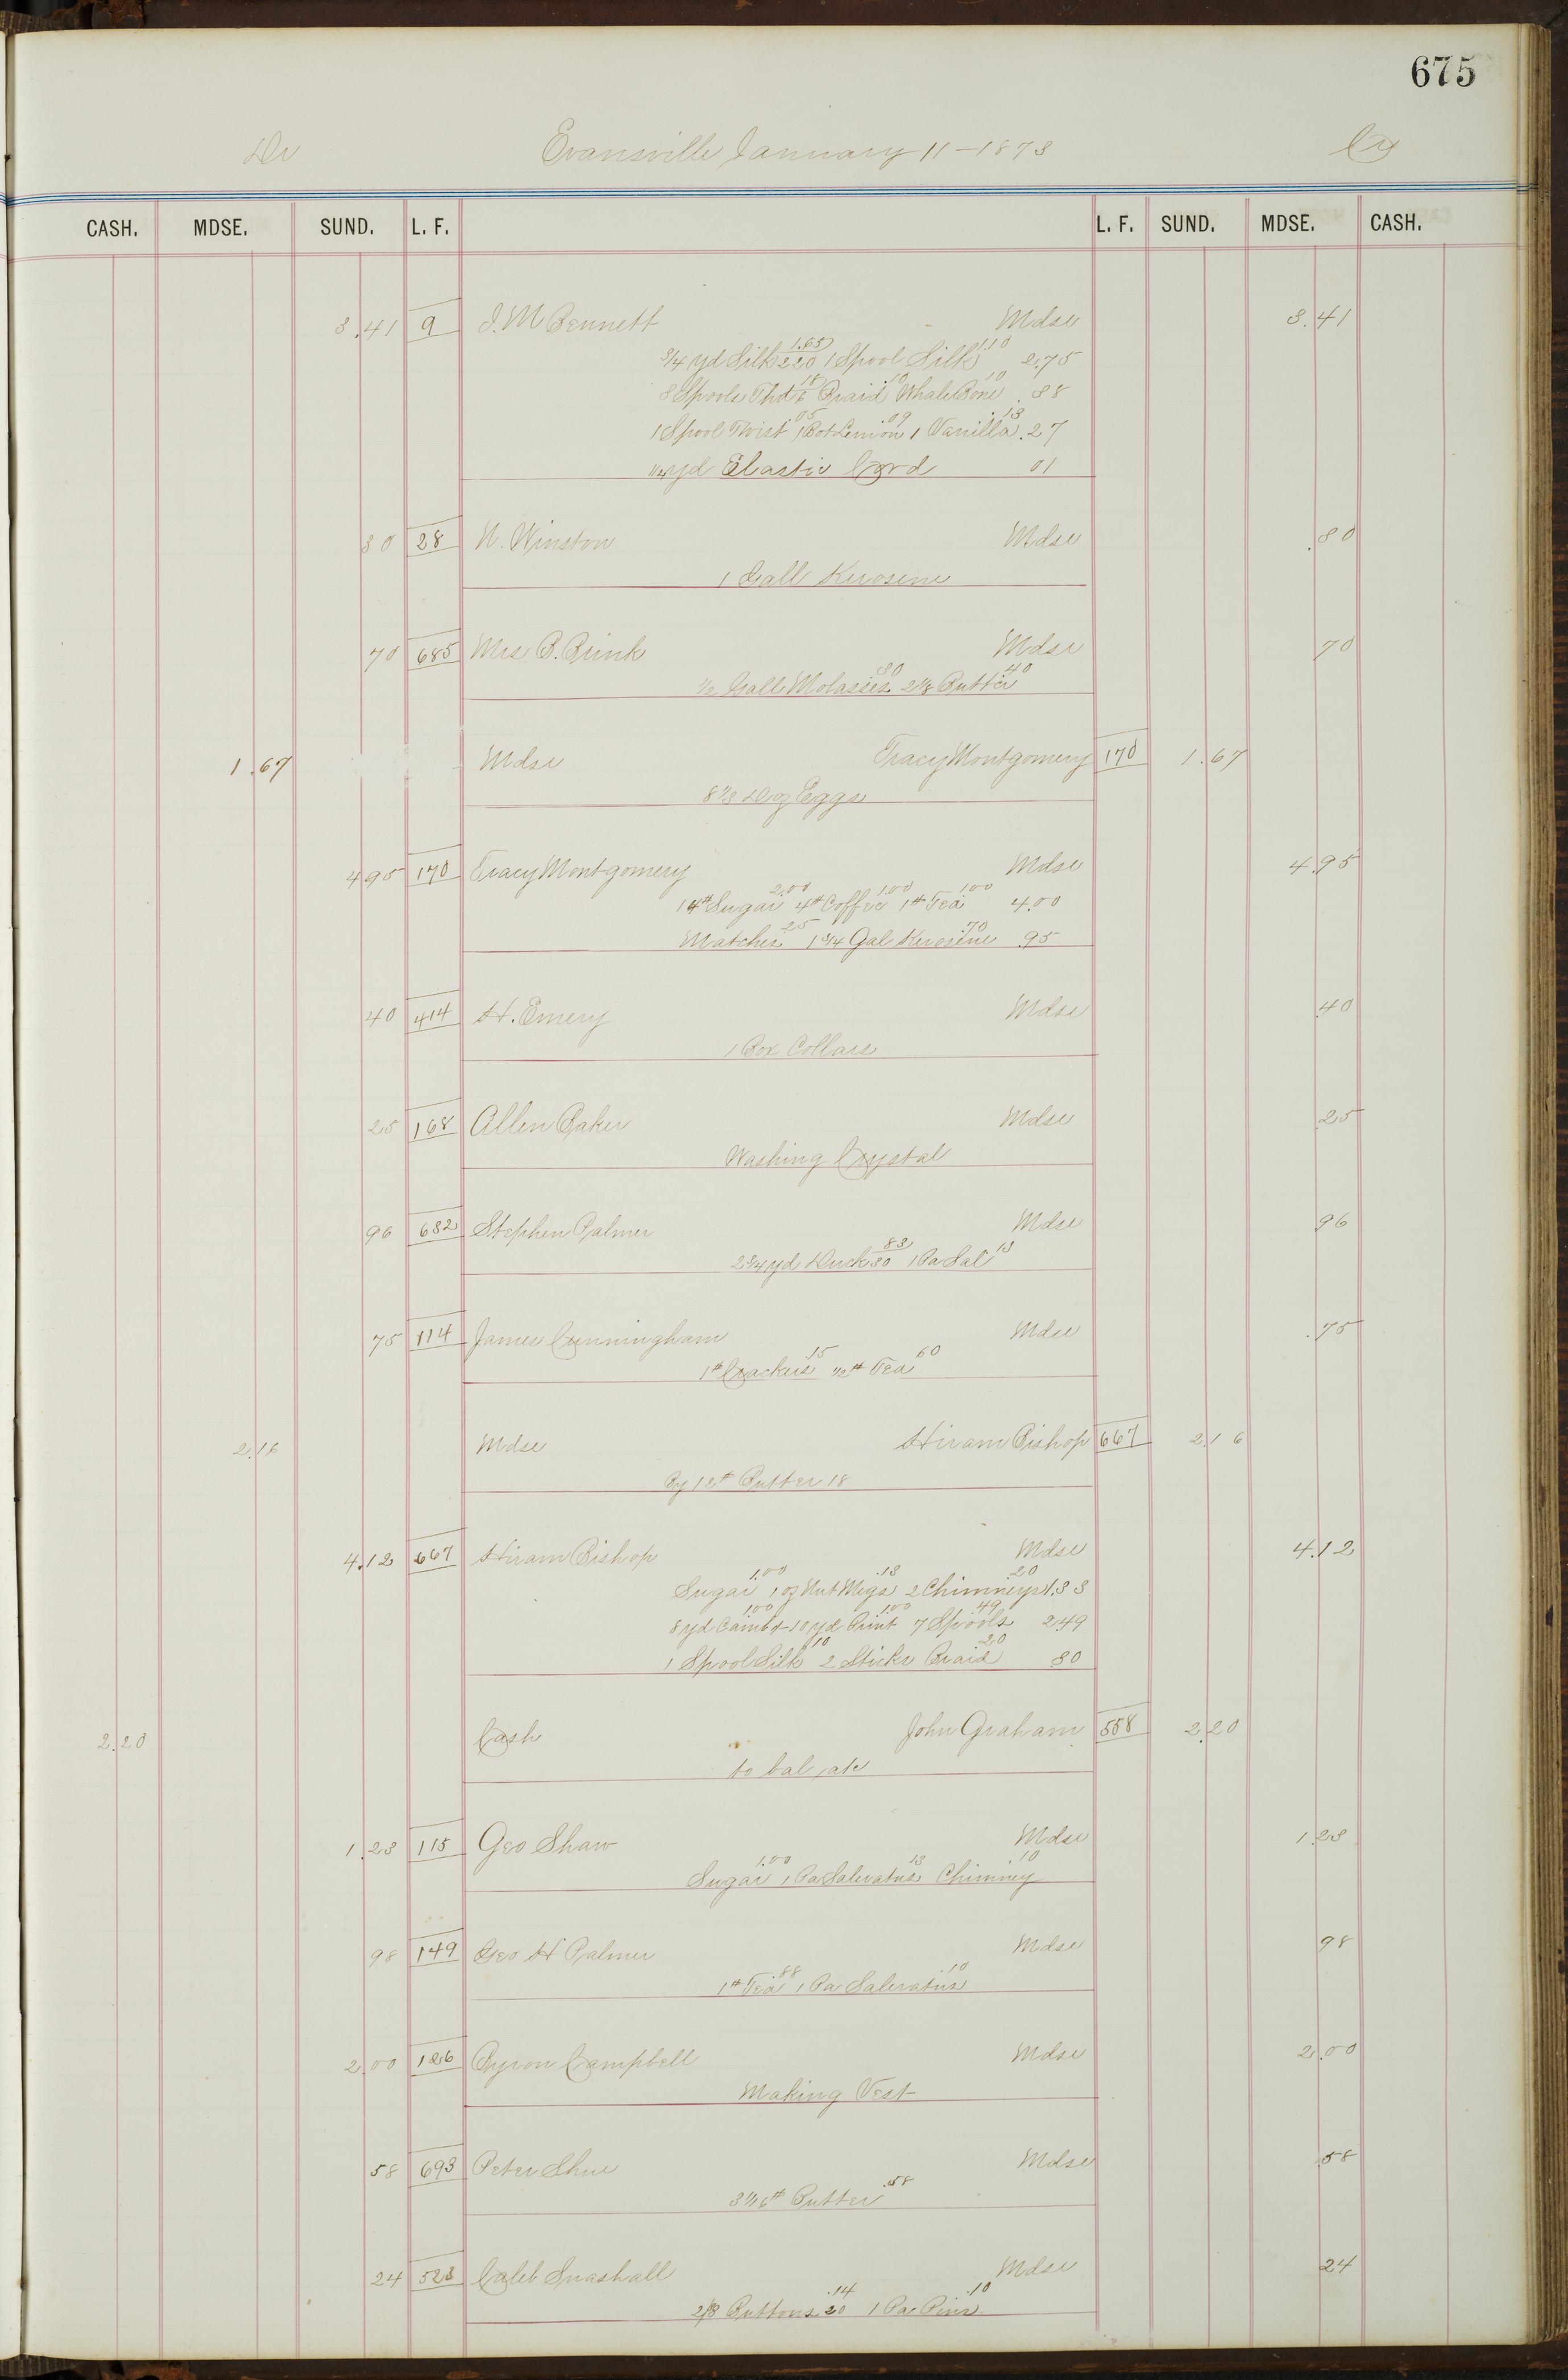 675
Dr Evansville January 11 - 1873 Cr
CASH. MDSE. SUND. L. F. L. F. SUND. MDSE. CASH.
3.41 9 J. M Bennett Mdse 3.41
3/4 yd Silk 1.65 2 20 1 Spool Silk 1.10 2.75
3 Spools Thd 18 6 Braid 10 Whale Bone 10 .38
1 Spool Twist 05 1 Bot Lemon 09 1 Vanilla .13 .27
1/4 yd Elastic Cord 01
30 28 N. Winston Mdse .30
1 Gall Kerosene
70 685 Mrs B. Brink Mdse 70
1/2 Gall Molasses 30 2 1/8 Butter 40
1.67 Mdse Tracy Montgomery 170 1.67
8 1/3 Doz Eggs
4.95 170 Tracy Montgomery Mdse 4.95
14# Sugar 2.00 4# Coffee 1.00 1# Tea 1.00 4.00
Matches 25 1 3/4 Gal Kerosene .70 95
40 414 H. Emery Mdse .40
1 Box Collars
25 168 Allen Baker Mdse .25
Washing Crystal
96 682 Stephen Palmer Mdse 96
2 3/4 yd Duck 83 30 1 Pa Sal 13
75 114 James Cunningham Mdse .75
1# Crackers .15 1/2# Tea 60
2.16 Mdse Hiram Bishop 667 2.16
By 12# Butter 18
4.12 667 Hiram Bishop Mdse 4.12
Sugar 1.00 1 oz Nut Megs .13 2 Chimneys .20 1.33
8 yd Camb 1.00 10 yd Print 1.00 7 Spools .49 2.49
1 Spool Silk 10 2 Sticks Braid 20 .30
2.20 Cash John Graham 558 2.20
to bal a/c
1.23 115 Geo Shaw Mdse 1.23
Sugar 1.00 1 Pa Saleratus 13 Chimney .10
98 149 Geo H Palmer Mdse 98
1# Tea .88 1 Pa Saleratus .10
2.00 126 Byron Campbell Mdse 2.00
Making Vest
58 693 Peter Shue Mdse .58
3 1/16# Butter .58
24 523 Caleb Snashall Mdse 24
2/3 Buttons .14 20 1 Pa Pins .10